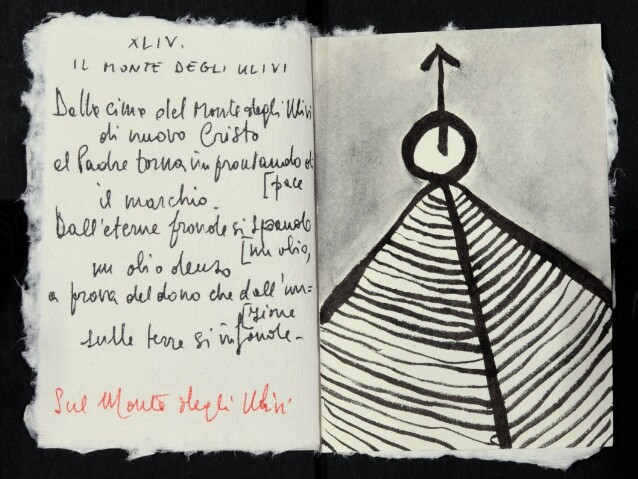 XLIV.
IL MONTE DEGLI ULIVI
Dalla cima del Monte degli Ulivi
di nuovo Cristo
al Padre torna improntando di
[pace
il marchio.
Dall'eterne fronde si spande
[un olio,
un olio denso
a prova del dono che dall'un=
[zione
sulle terre si infonde.
Sul Monte degli Ulivi